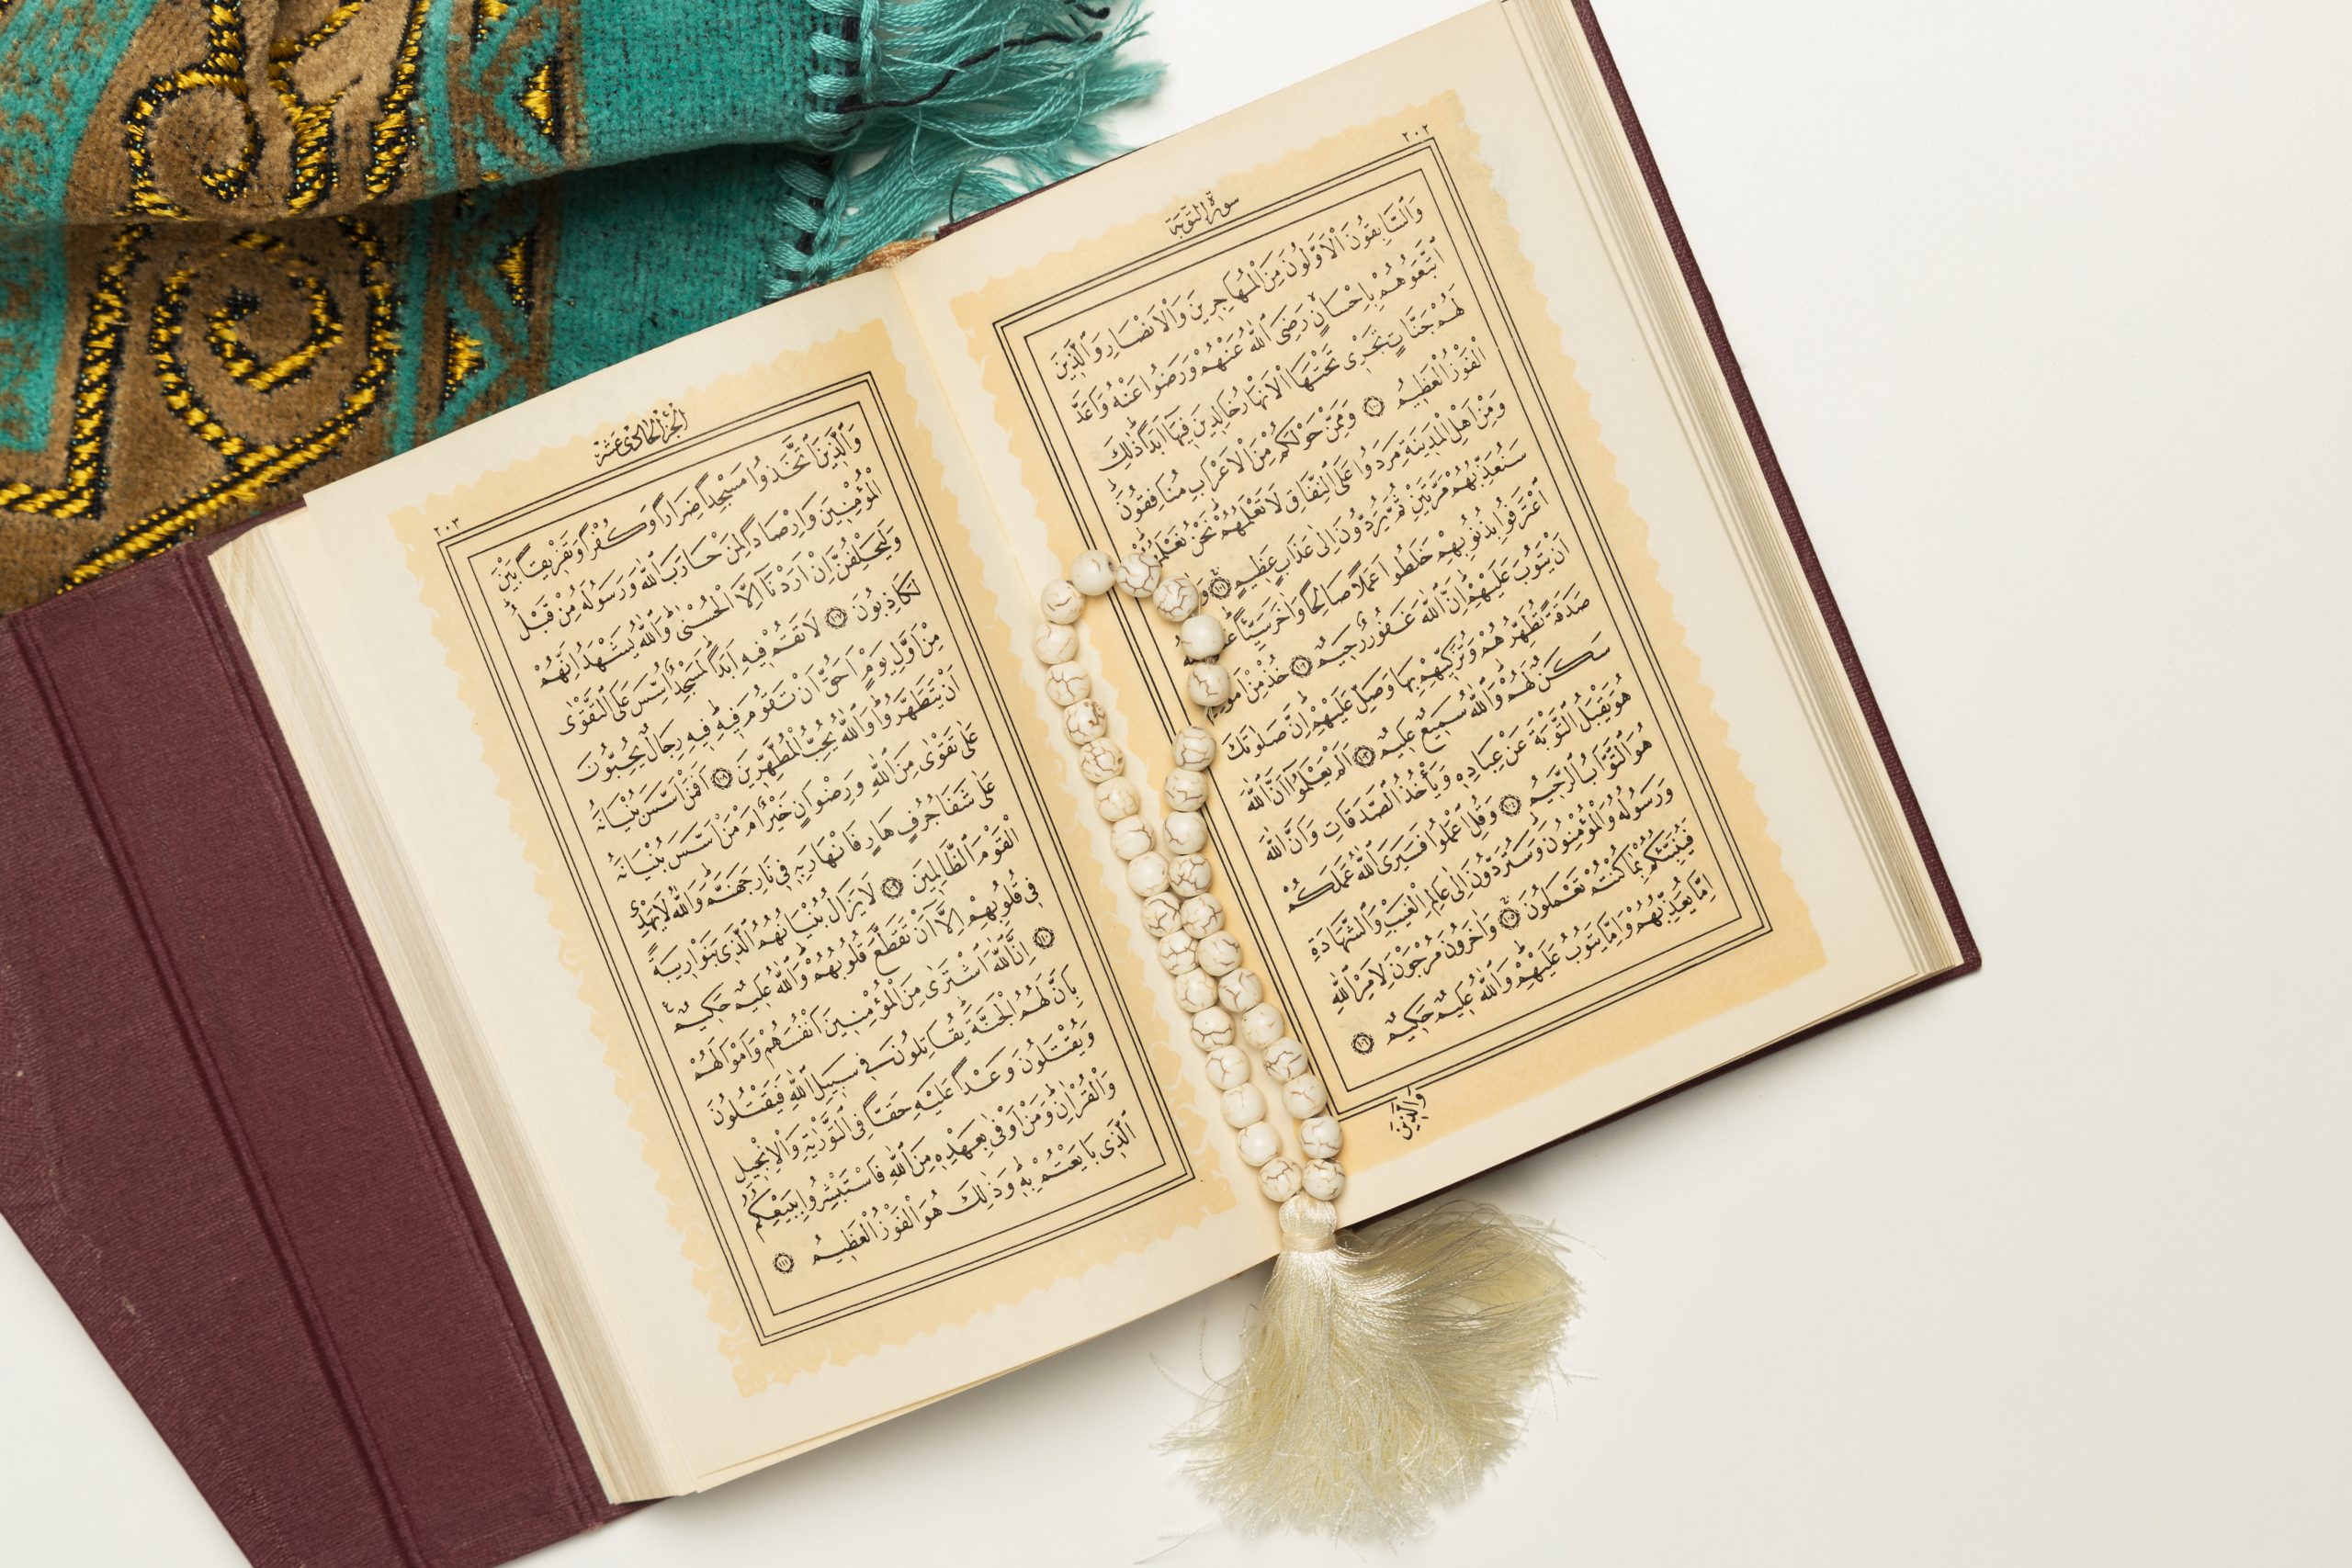 ٢٠٢
سورة التوبة
وَالسَّابِقُونَ الْاَوَّلُونَ مِنَ الْمُهَاجِرِينَ وَالْاَنْصَارِ وَالَّذِينَ
اتَّبَعُوهُمْ بِاِحْسَانٍ رَضِىَ اللّٰهُ عَنْهُمْ وَرَضُوا عَنْهُ وَاَعَدَّ
لَهُمْ جَنَّاتٍ تَجْرِى تَحْتَهَا الْاَنْهَارُ خَالِدِينَ فِيهَٓا اَبَدًا ذٰلِكَ
الْفَوْزُ الْعَظِيمُ ١٠٠ وَمِمَّنْ حَوْلَكُمْ مِنَ الْاَعْرَابِ مُنَافِقُونَ
وَمِنْ اَهْلِ الْمَدِينَةِ مَرَدُوا عَلَى النِّفَاقِ لَا تَعْلَمُهُمْ نَحْنُ نَعْلَمُهُمْ
سَنُعَذِّبُهُمْ مَرَّتَيْنِ ثُمَّ يُرَدُّونَ اِلٰى عَذَابٍ عَظِيمٍ ١٠١
اعْتَرَفُوا بِذُنُوبِهِمْ خَلَطُوا عَمَلًا صَالِحًا وَاٰخَرَ سَيِّئًا
اَنْ يَتُوبَ عَلَيْهِمْ اِنَّ اللّٰهَ غَفُورٌ رَحِيمٌ ١٠٢ خُذْ مِنْ
صَدَقَةً تُطَهِّرُهُمْ وَتُزَكِّيهِمْ بِهَا وَصَلِّ عَلَيْهِمْ اِنَّ صَلٰوتَكَ
سَكَنٌ لَهُمْ وَاللّٰهُ سَمِيعٌ عَلِيمٌ ١٠٣ اَلَمْ يَعْلَمُٓوا اَنَّ اللّٰهَ
هُوَ يَقْبَلُ التَّوْبَةَ عَنْ عِبَادِهِ وَيَأْخُذُ الصَّدَقَاتِ وَاَنَّ اللّٰهَ
هُوَ التَّوَّابُ الرَّحِيمُ ١٠٤ وَقُلِ اعْمَلُوا فَسَيَرَى اللّٰهُ عَمَلَكُمْ
وَرَسُولُهُ وَالْمُؤْمِنُونَ وَسَتُرَدُّونَ اِلٰى عَالِمِ الْغَيْبِ وَالشَّهَادَةِ
فَيُنَبِّئُكُمْ بِمَا كُنْتُمْ تَعْمَلُونَ ١٠٥ وَاٰخَرُونَ مُرْجَوْنَ لِاَمْرِ اللّٰهِ
اِمَّا يُعَذِّبُهُمْ وَاِمَّا يَتُوبُ عَلَيْهِمْ وَاللّٰهُ عَلِيمٌ حَكِيمٌ ١٠٦
وَالَّذِينَ
٢٠٣
الجزء الحادى عشر
وَالَّذِينَ اتَّخَذُوا مَسْجِدًا ضِرَارًا وَكُفْرًا وَتَفْرِيقًا بَيْنَ
الْمُؤْمِنِينَ وَاِرْصَادًا لِمَنْ حَارَبَ اللّٰهَ وَرَسُولَهُ مِنْ قَبْلُ
وَلَيَحْلِفُنَّ اِنْ اَرَدْنَٓا اِلَّا الْحُسْنٰى وَاللّٰهُ يَشْهَدُ اِنَّهُمْ
لَكَاذِبُونَ ١٠٧ لَا تَقُمْ فِيهِ اَبَدًا لَمَسْجِدٌ اُسِّسَ عَلَى التَّقْوٰى
مِنْ اَوَّلِ يَوْمٍ اَحَقُّ اَنْ تَقُومَ فِيهِ فِيهِ رِجَالٌ يُحِبُّونَ
اَنْ يَتَطَهَّرُوا وَاللّٰهُ يُحِبُّ الْمُطَّهِّرِينَ ١٠٨ اَفَمَنْ اَسَّسَ بُنْيَانَهُ
عَلٰى تَقْوٰى مِنَ اللّٰهِ وَرِضْوَانٍ خَيْرٌ اَمْ مَنْ اَسَّسَ بُنْيَانَهُ
عَلٰى شَفَا جُرُفٍ هَارٍ فَانْهَارَ بِهِ فِى نَارِ جَهَنَّمَ وَاللّٰهُ لَا يَهْدِى
الْقَوْمَ الظَّالِمِينَ ١٠٩ لَا يَزَالُ بُنْيَانُهُمُ الَّذِى بَنَوْا رِيبَةً
فِى قُلُوبِهِمْ اِلَّٓا اَنْ تَقَطَّعَ قُلُوبُهُمْ وَاللّٰهُ عَلِيمٌ حَكِيمٌ
١١٠ اِنَّ اللّٰهَ اشْتَرٰى مِنَ الْمُؤْمِنِينَ اَنْفُسَهُمْ وَاَمْوَالَهُمْ
بِاَنَّ لَهُمُ الْجَنَّةَ يُقَاتِلُونَ فِى سَبِيلِ اللّٰهِ فَيَقْتُلُونَ
وَيُقْتَلُونَ وَعْدًا عَلَيْهِ حَقًّا فِى التَّوْرٰيةِ وَالْاِنْجِيلِ
وَالْقُرْاٰنِ وَمَنْ اَوْفٰى بِعَهْدِهِ مِنَ اللّٰهِ فَاسْتَبْشِرُوا بِبَيْعِكُمُ
الَّذِى بَايَعْتُمْ بِهِ وَذٰلِكَ هُوَ الْفَوْزُ الْعَظِيمُ ١١١